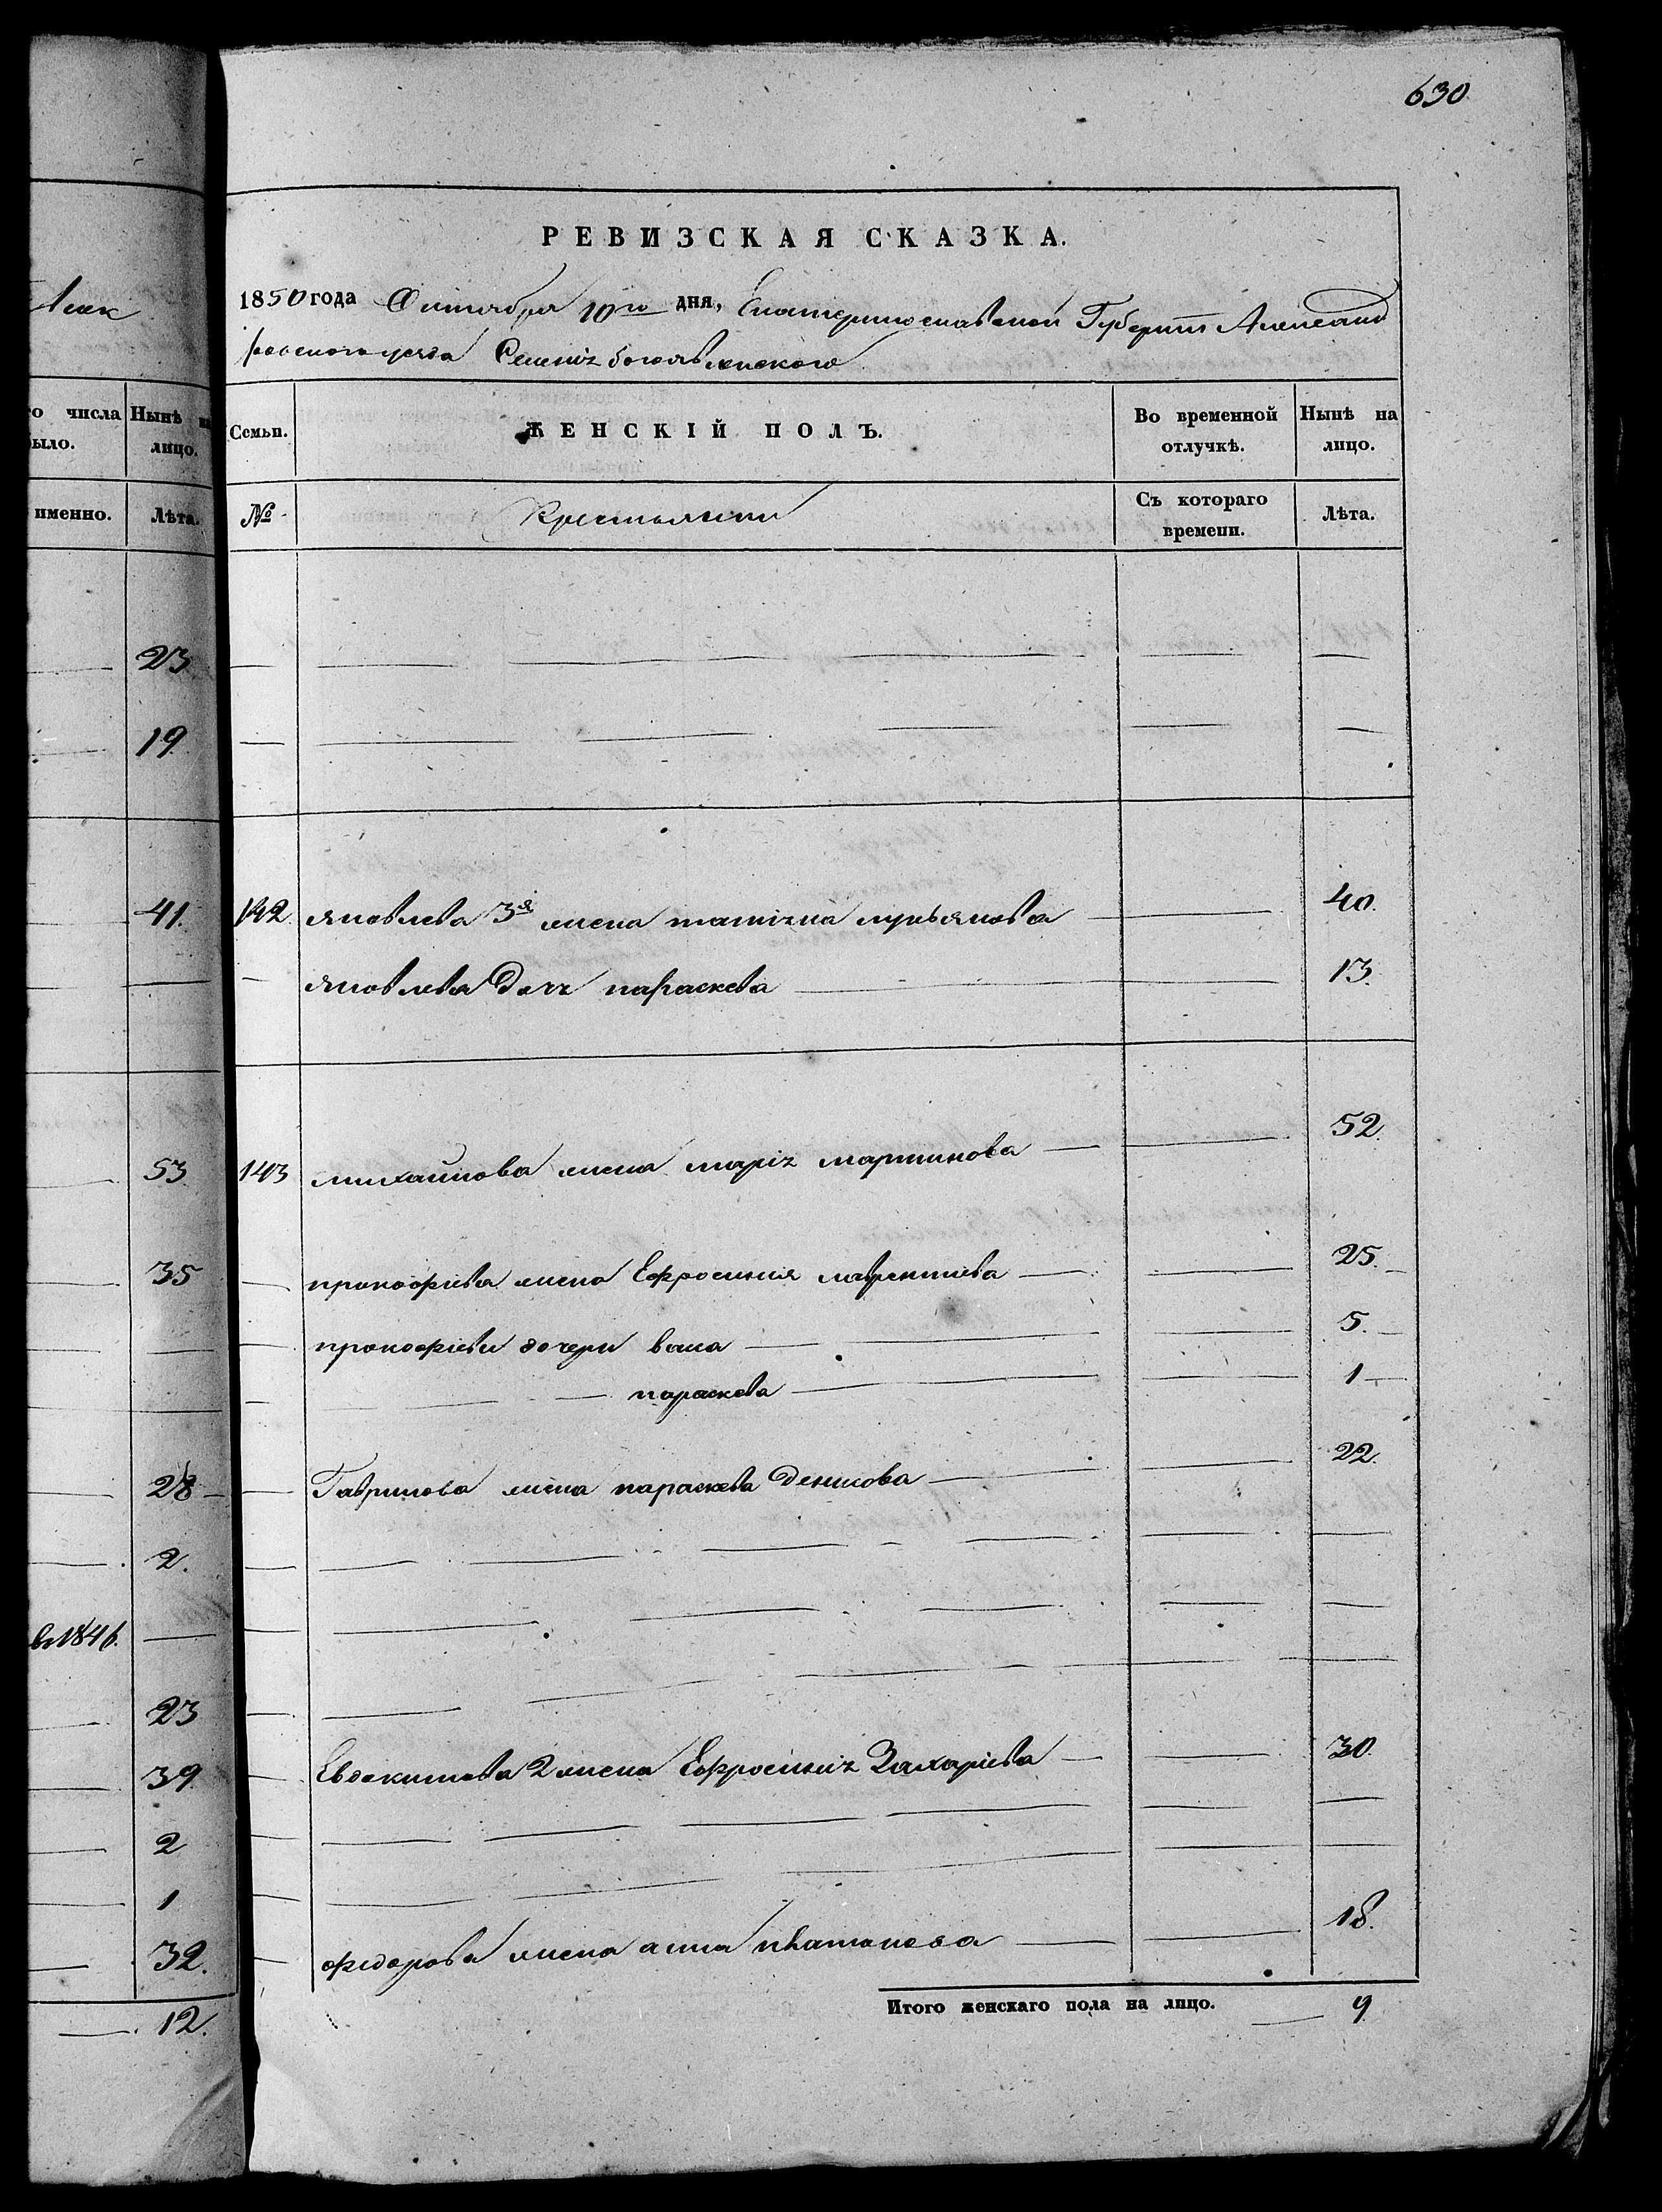 630
Лек
РЕВИЗСКАЯ СКАЗКА.
1850 года Октября 10го дня, Екатеринославской Губернии Александ
ровского уезда Селенiя богоявленского
числа
было.
Нынѣ на лицо.
именно.
Лѣта.
Семьи.
ЖЕНСКІЙ ПОЛЪ.
Во временной отлучкѣ.
Нынѣ на лицо.
№
Крестьянки
Съ котораго времени.
Лѣта.
23
19
41. 142 яковлева 3я жена татiяна лукьянова 40.
яковлева Дочь параскева 13.
53 143 михайлова жена марiя мартинова 52.
35 прокофiева жена Ефросиния лаврентiева 25.
прокофiевы дочери васа 5.
параскева 1
28 Гаврилова жена параскева Денисова 22.
2.
въ 1846.
23
39 Евдокимова 2 жена Ефросинiя Захарiева 30.
2
1
32. федорова жена анна платонова 18.
12.
Итого женскаго пола на лицо. 9